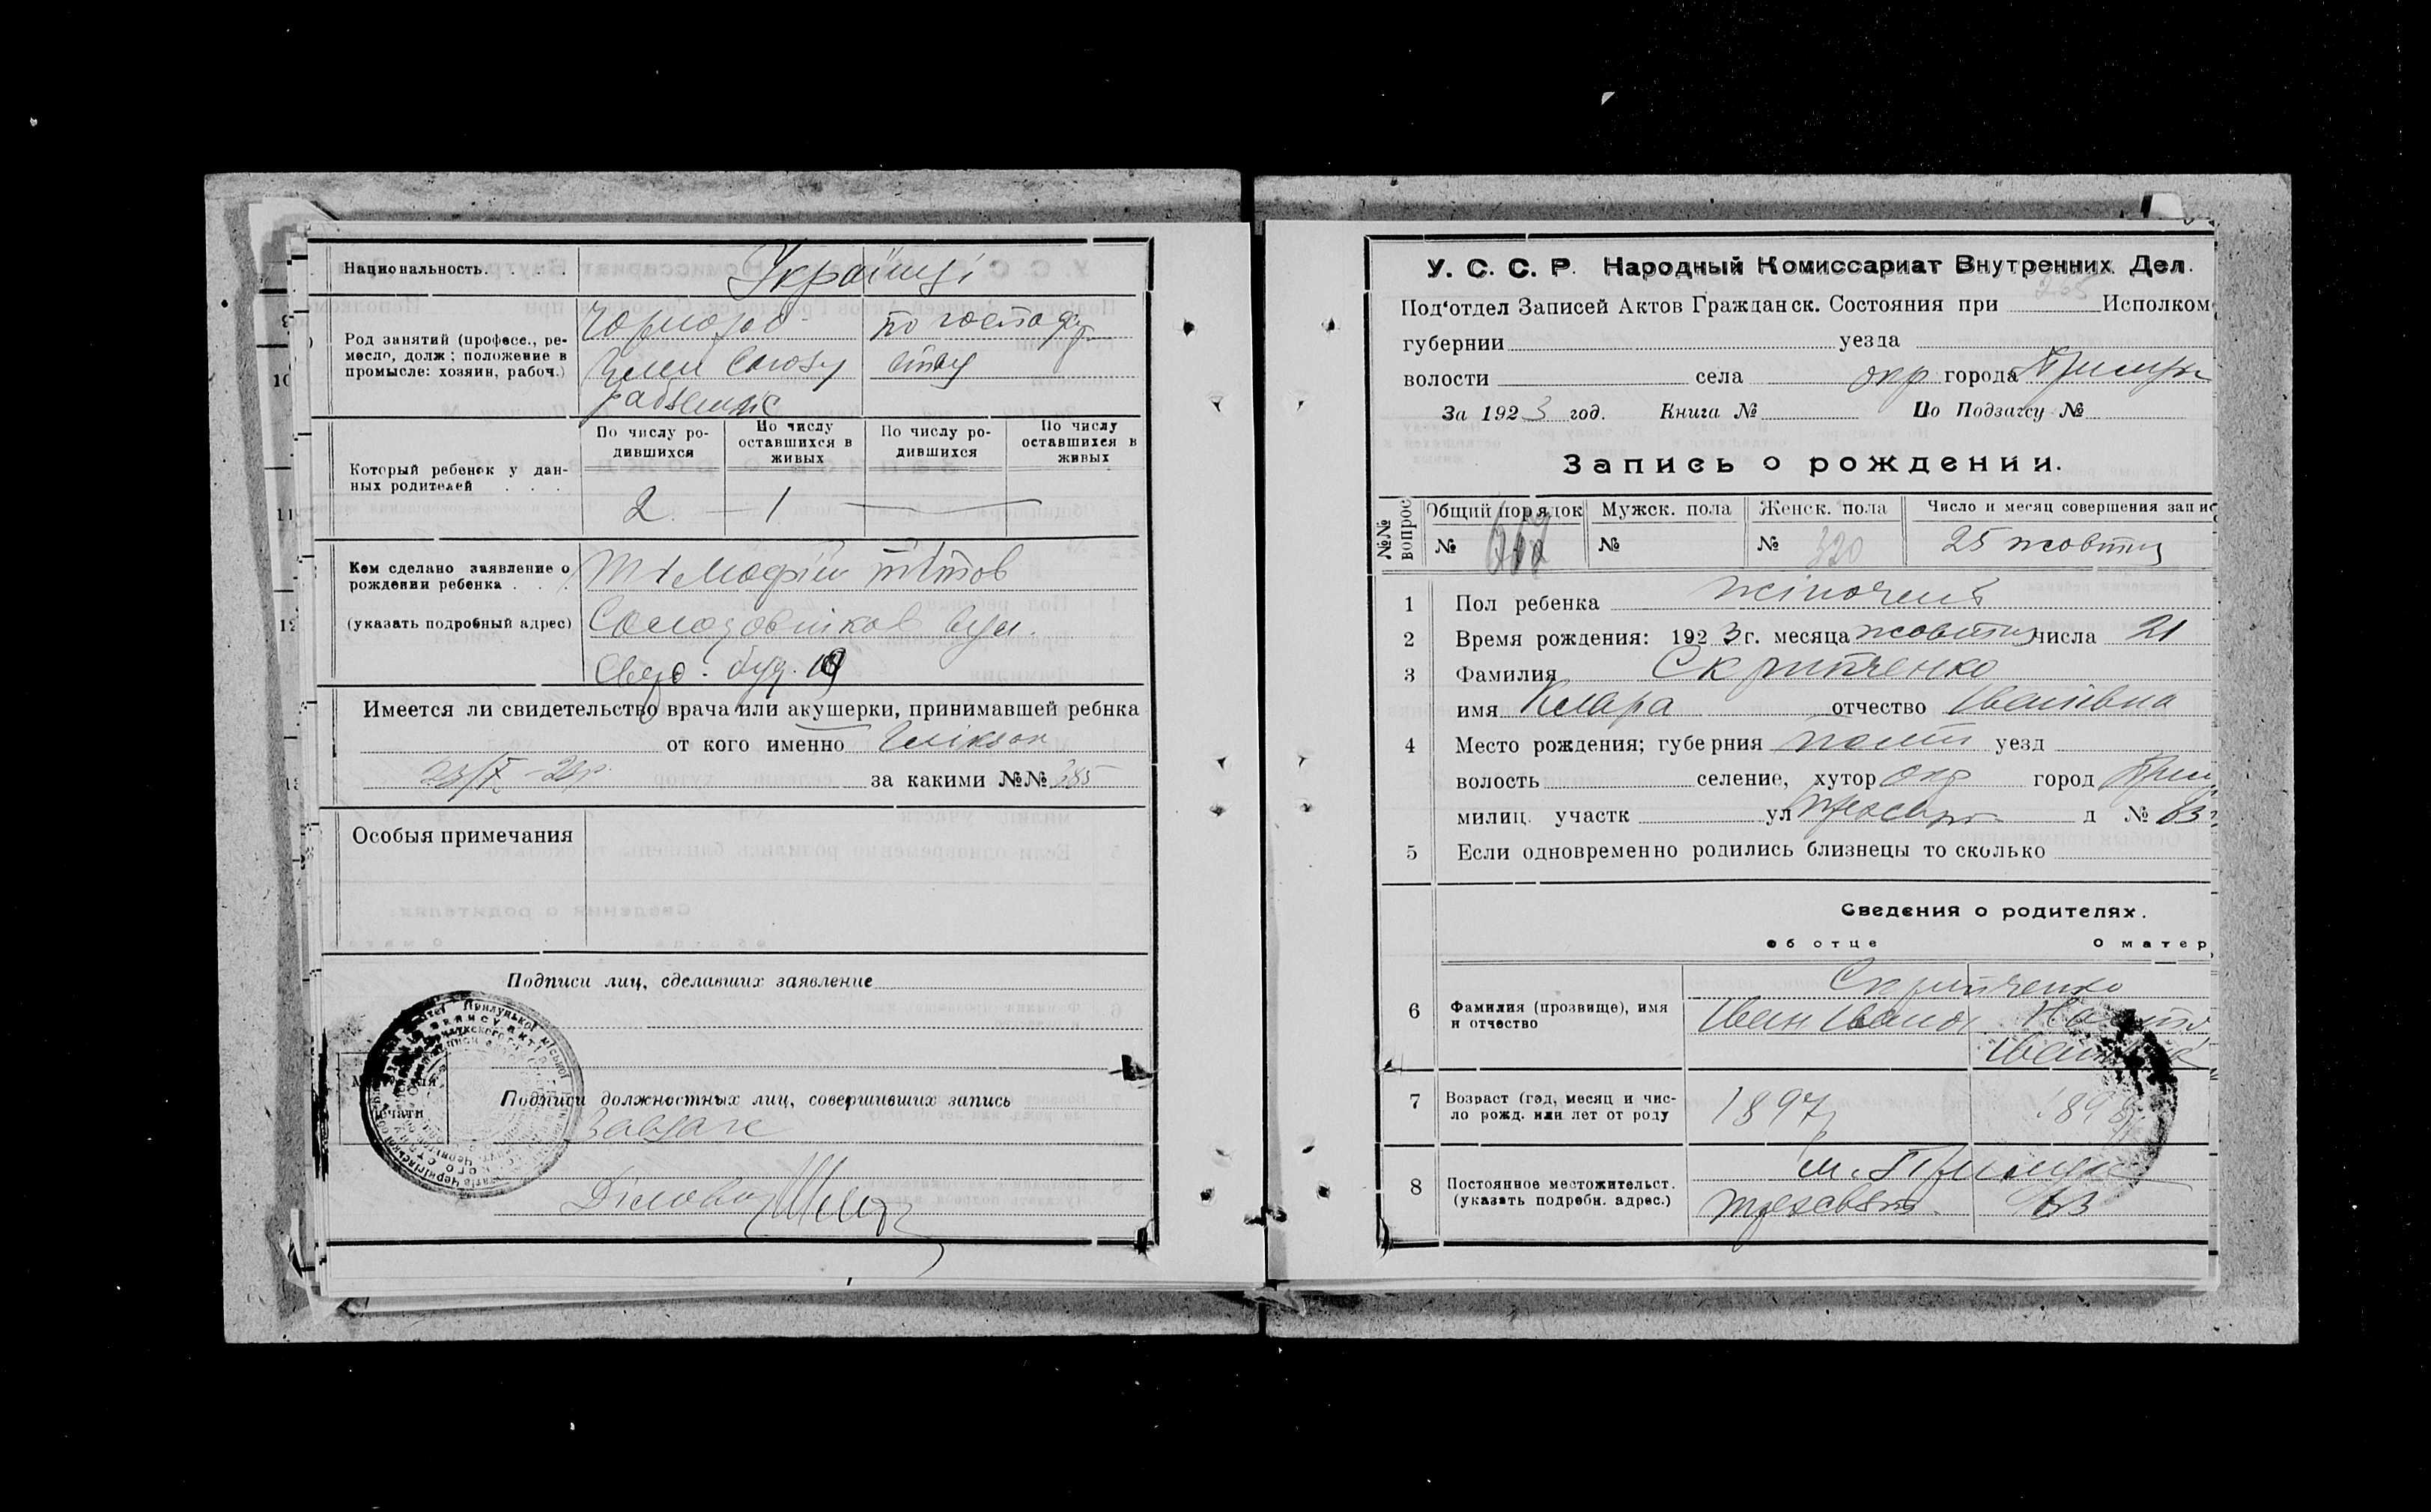 Национальность. . . . Українці
Род занятий (професс., ре-
месло, долж; положение в
промысле: хозяин, рабоч.)
Чорнороб- по господар
Член Союзу ству
Который ребенок у дан-
ных родителей . . .
По числу ро-
дившихся
По числу
оставшихся в
живых
По числу ро-
дившихся
По числу
оставшихся в
живых
2 — 1
Кем сделано заявление о
рождении ребенка . . .
(указать подробный адрес)
Тімофій Тітов
Солодовніков вул.
буд. 19
Имеется ли свидетельство врача или акушерки, принимавшей ребнка
от кого именно
за какими №№ 385
Особыя примечания
Подписи лиц, сделавших заявление
Подписи должностных лиц, совершивших запись
Завзагс
Діловод
У. С. С. Р. Народный Комиссариат Внутренних Дел.
Под‘отдел Записей Актов Гражданск. Состояния при Исполком
губернии уезда
волости села окр города Прилуки
За 1923 год. Книга № По Подзагсу №
Запись о рождении.
№№ вопрос
Общий порядок Мужск. пола Женск. пола Число и месяц совершения запис
№ № № 320 25 жовтня
1 Пол ребенка жіночень
2 Время рождения: 1923 г. месяца жовтня числа 21
3 Фамилия Скрипченко
имя Клара отчество Іванівна
4 Место рождения; губерния Полт уезд
волость селение, хутор окр город Прил
милиц. участк ул Трьохсвят д № 63
5 Если одновременно родились близнецы то сколько
Сведения о родителях.
об отце О матер
6 Фамилия (прозвище), имя
и отчество
Скрипченко
Іван Іванов
7 Возраст (год, месяц и чис-
ло рожд. или лет от роду
1897
8 Постоянное местожительст.
(указать подробн. адрес.)
м. Прилуки
Трехсвят. 63